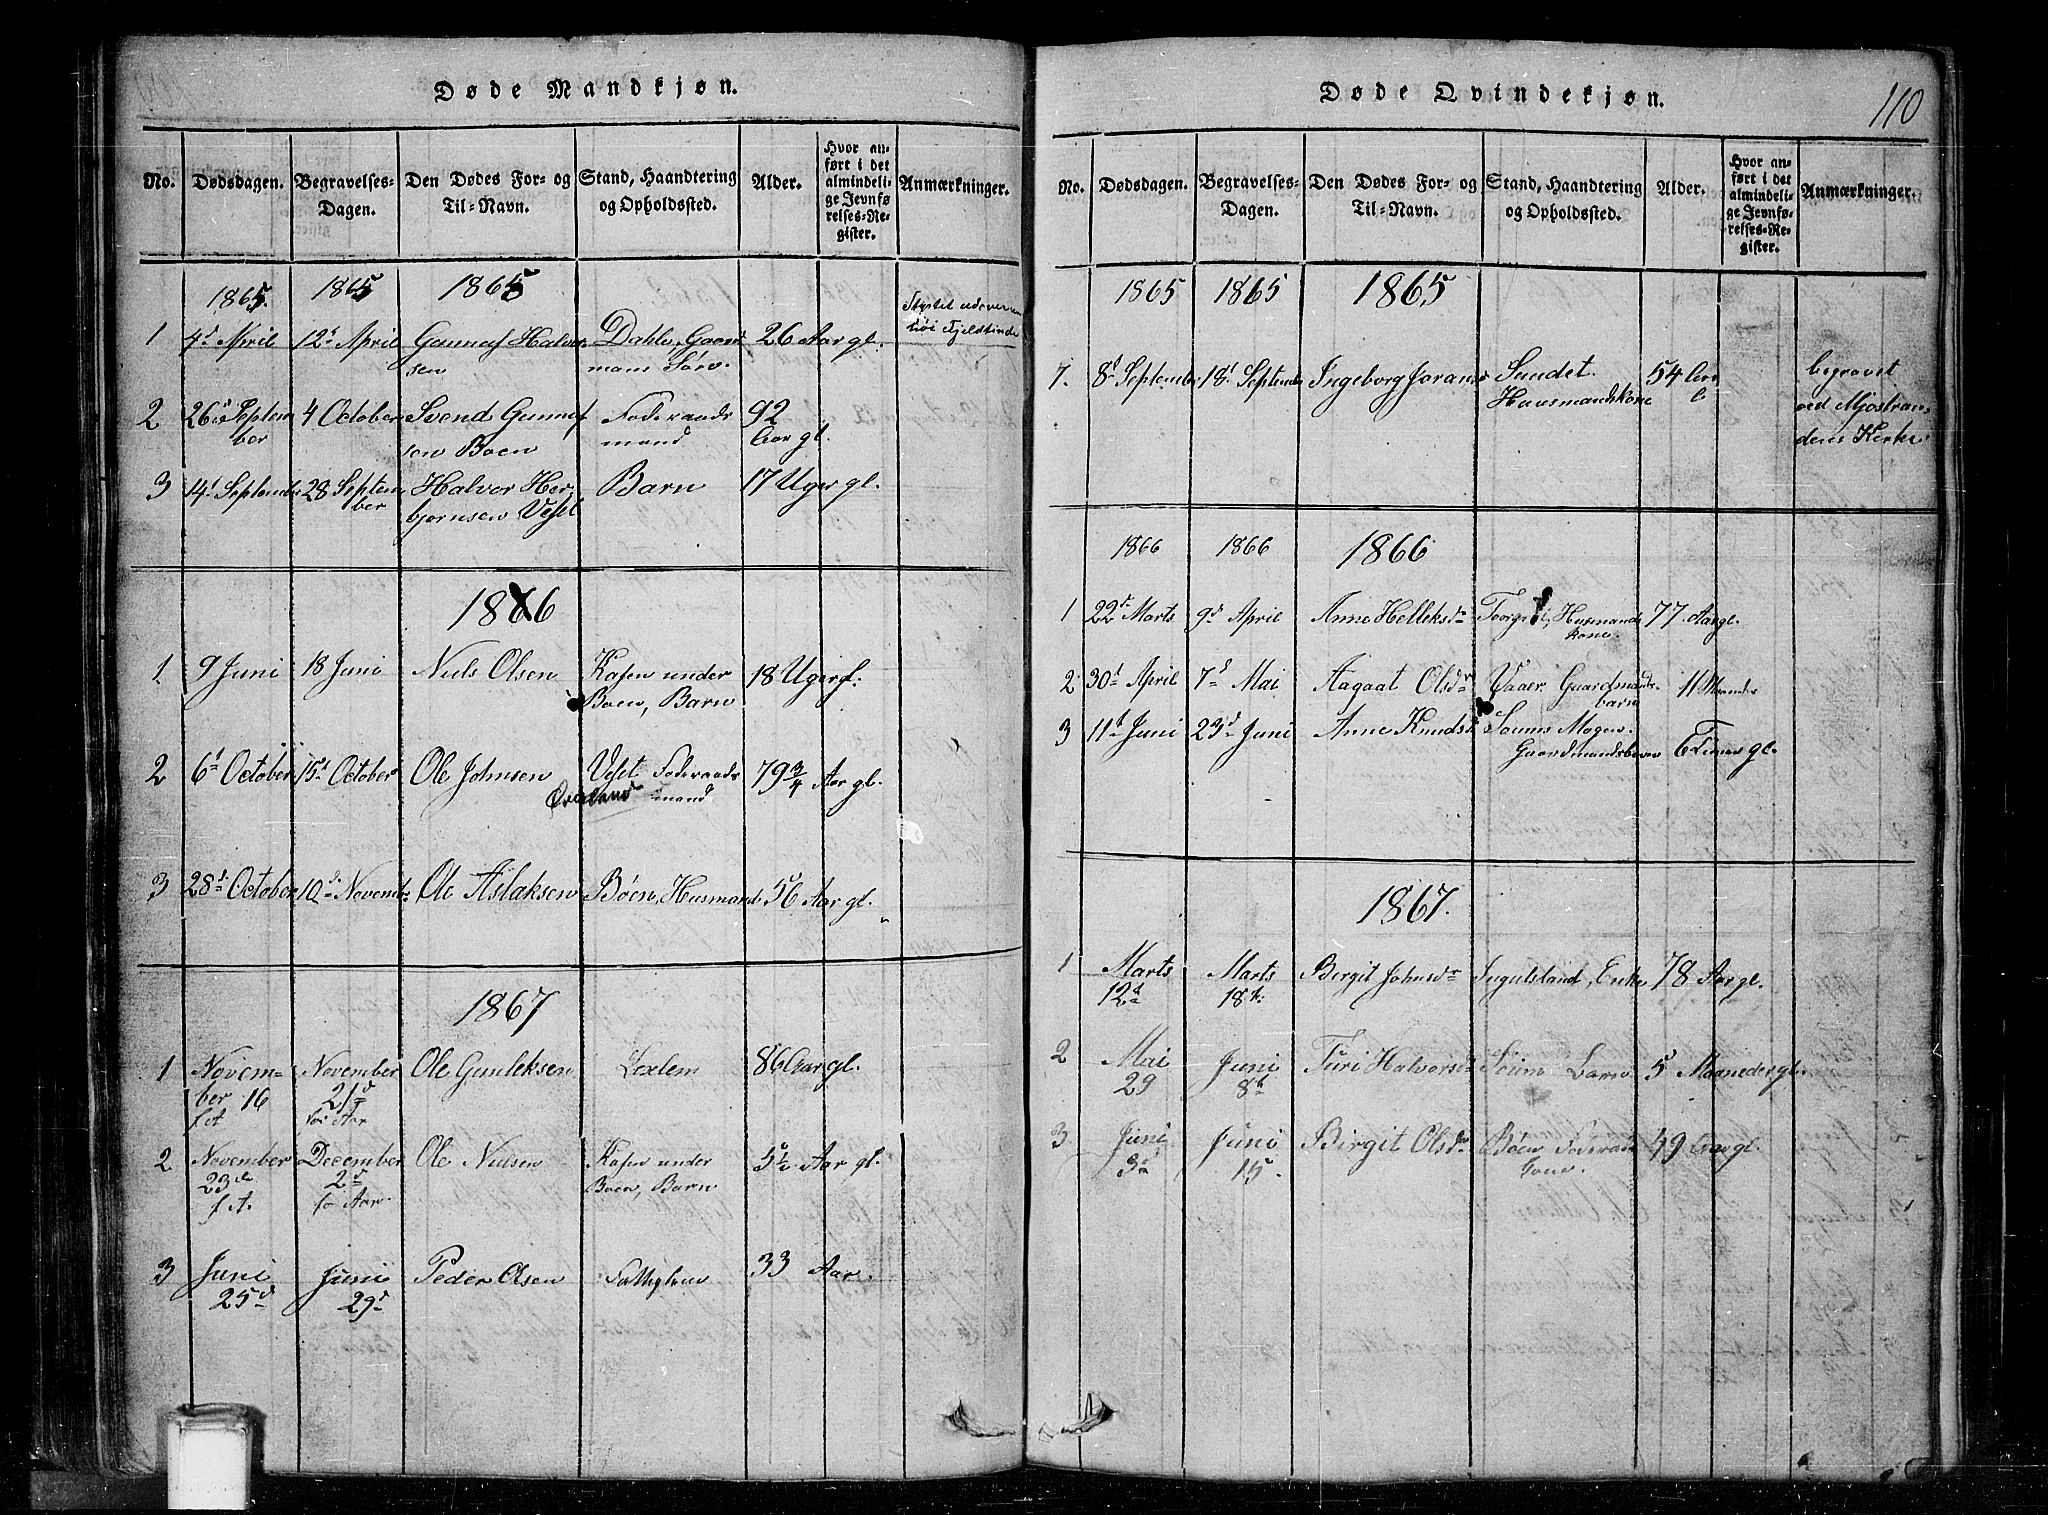 Døde Mandkjøn.
No. Dødsdagen. Begravelses-Dagen. Den Dødes For- og Til-Navn. Stand, Haandtering og Opholdssted. Alder. Hvor anført i det almindelige Jevnførelses-Register. Anmærkninger.
1865. 1865 1865
1 4d April 12d April Gunnar Halvorsen Dahle, Gaardmans 26 Aar gl. Styrtet udover en høi Fjeldtinde
2 26d September 4 October Svend Gunnarsen Boen Foderaadsmand 92 Aar gl.
3 14d September 28 September Halvor Herbjornsen Veset Barn 17 Uger gl.
1866
1. 9 Juni 18 Juni Niels Olsen Kasen under Boen, Barn 18 Uger gl.
2 6d October 15d October Ole Johnsen Veset Foderaadsmand 79 3/4 Aar gl.
3 28d October 10d Novembr Ole Aslaksen Bøen, Husmand 56 Aar gl.
1867
1 November 16 f. A. November 21d for. Aar Ole Gunleksen 86 Aar gl.
2 November 23de f. A. December 2d fo Aar. Ole Nielsen Kasen under Boen, Barn 5½ Aar gl.
3 Juni 25d Juni 29d Peder Olsen 33 Aar.
Døde Qvindekjøn.
110
No. Dødsdagen. Begravelses-Dagen. Den Dødes For- og Til-Navn. Stand, Haandtering og Opholdssted. Alder. Hvor anført i det almindelige Jevnførelses-Register. Anmærkninger.
1865 1865 1865
7. 8d September 18d September Ingeborg Joransd Sundet. Huusmandskone 54 Aar begravet ved Mjostrandens Kirke.
1866 1866 1866
1 22d Marts 9d April Anne Helleksdr Husmandskone 77 Aar gl.
2 30d April 7d Mai Aagaat Olsdr Vaaer Gaardmandsbarn 11 Maaneder
3 11d Juni 23d Juni Anne Knudsd Gaardmandsbarn 6 Timer gl.
1867.
1 Marts 12d Marts 18d Birgit Johnsdr Ingulsland, Enke 78 Aar gl.
2 Mai 29 Juni 8d Turi Halvorsd Barn 5 Maaneder gl.
3 Juni 3d Juni 15. Birgit Olsdr Bøen Foderaadskone. 49 Aar gl.